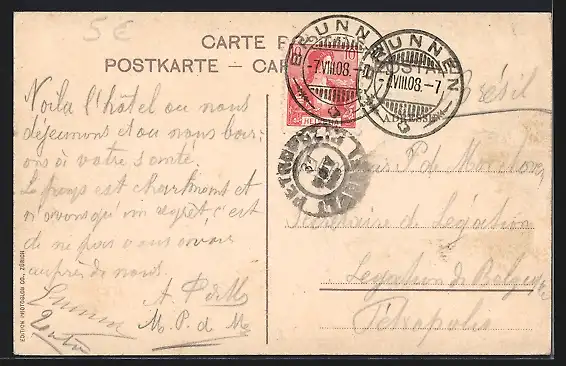 5€
CARTE
POSTKARTE — CAR
BRUNNEN
-7.VIII.08.-
10
HELVETIA
BRUNNEN
-7.VIII.08.-7
ADRESSE
Brésil
Voilà l'hôtel où nous
déjeunons et où nous buv-
ons à votre santé.
Le pays est charmant et
n'avons qu'un regret, c'est
de ne pas vous avoir
auprès de nous.
A. P. de M
M. P. de M
Monsieur P. de
Secrétaire de Légation
Légation de Belgique
Pétropolis
EDITION PHOTOGLOB CO., ZÜRICH